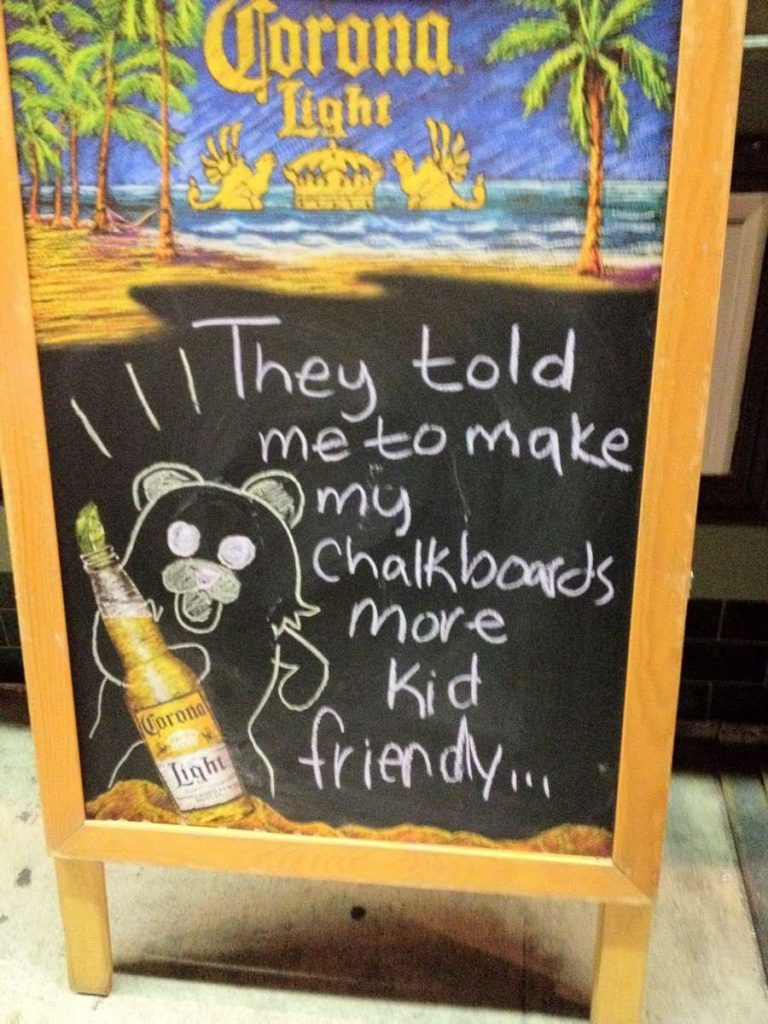 Corona
Light
They told
me to make
my
chalkboards
more
kid
friendly...
Corona
Light